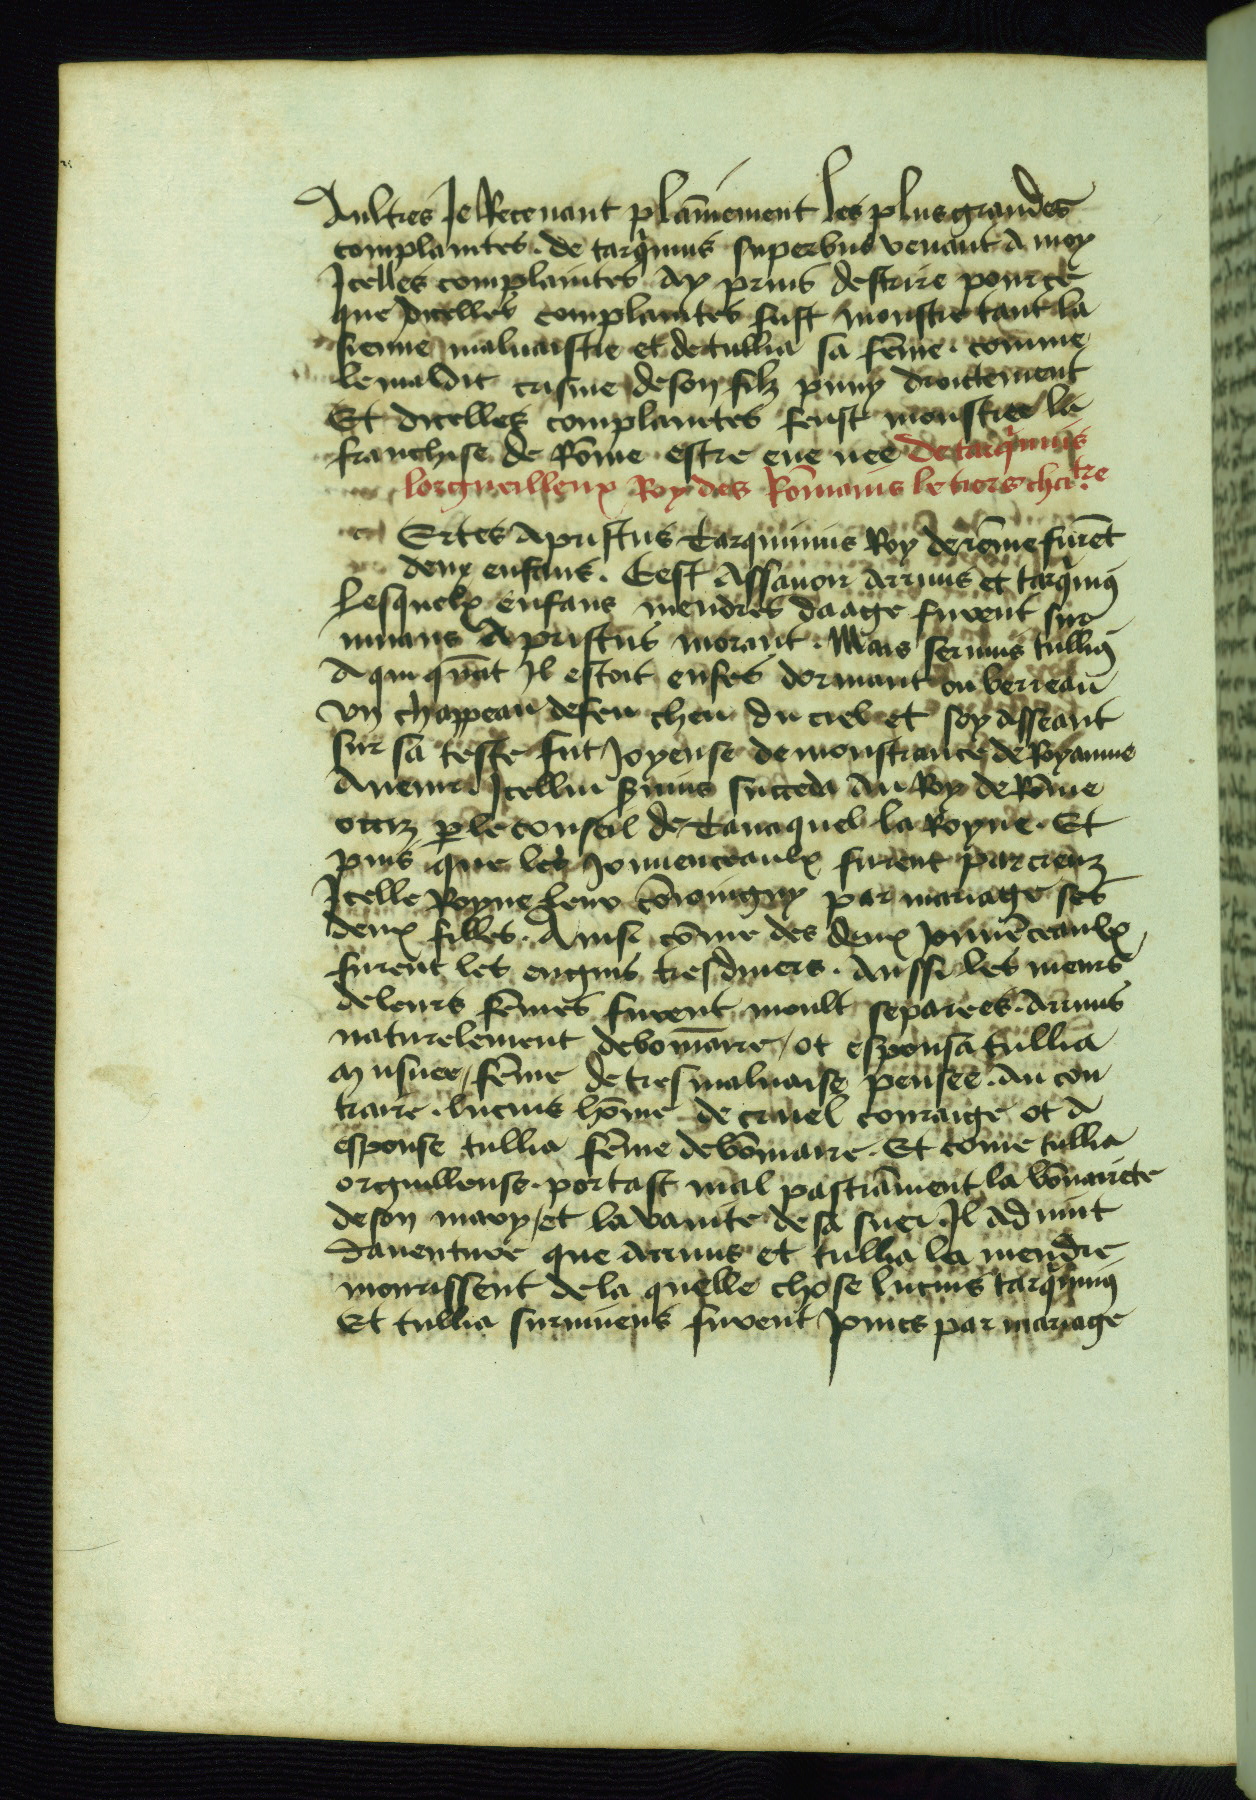 Aultres Je Recevant plainement les plus grandes
complaintes . de tarquinius superbus venant A moy
Icelles complaintes Ay prins descrire pource
que dicelles complaintes fust monstre tant la
sienne malvaistie et de tullia sa fēme . comme
le maldit crisme de son filz puny droictement
Et dicelles complaintes feust monstree la
franchise de Rōme estre eue nee de tarquinius
lorgueilleux Roy des Rōmains le tiers chatre
Ertes A pristus Tarquinius Roy de rōme furēt
deux enfans . Cest Assavoir Arrinus et tarquinius
Lesquelx enfans mendres daage furent sur
vivans A pristus morant . Mais servius tullius
A qui quāt Il estoit enfes dormant ou berreau
Un chappeau de feu cheu du ciel et soy asseant
sur sa teste fut joyeuse demonstrance de Royaume
Avenir . Icellui Servius succeda Au Roy de Rōme
occiz p le conseil de Tanaquel la Royne . Et
puis que les Jouvenceaulx furent parcreuz
Icelle Royne leur cōioingny par mariage ses
deux filles . Ainsi cōme des deux Jouvēceaulx
furent les engins tresdivers . Aussi les meurs
de leurs fēmes furent moult separees . Arrinus
naturelement debonnaire / ot espousa tullia
mainsnee / fēme de tresmalvaise pensee . Au con
traire . lucius hōme de cruel couraige ot A
espouse tullia fēme debōnaire . Et come tullia
orguilleuse . portast mal paciāment la bōnairete
de son mary / et la vanite de sa suer . Il Advint
daventure que Arrinus et tullia la mendre
mourissent de la quelle chose lucius tarquinius
Et tullia survivens furent Joincs par mariage